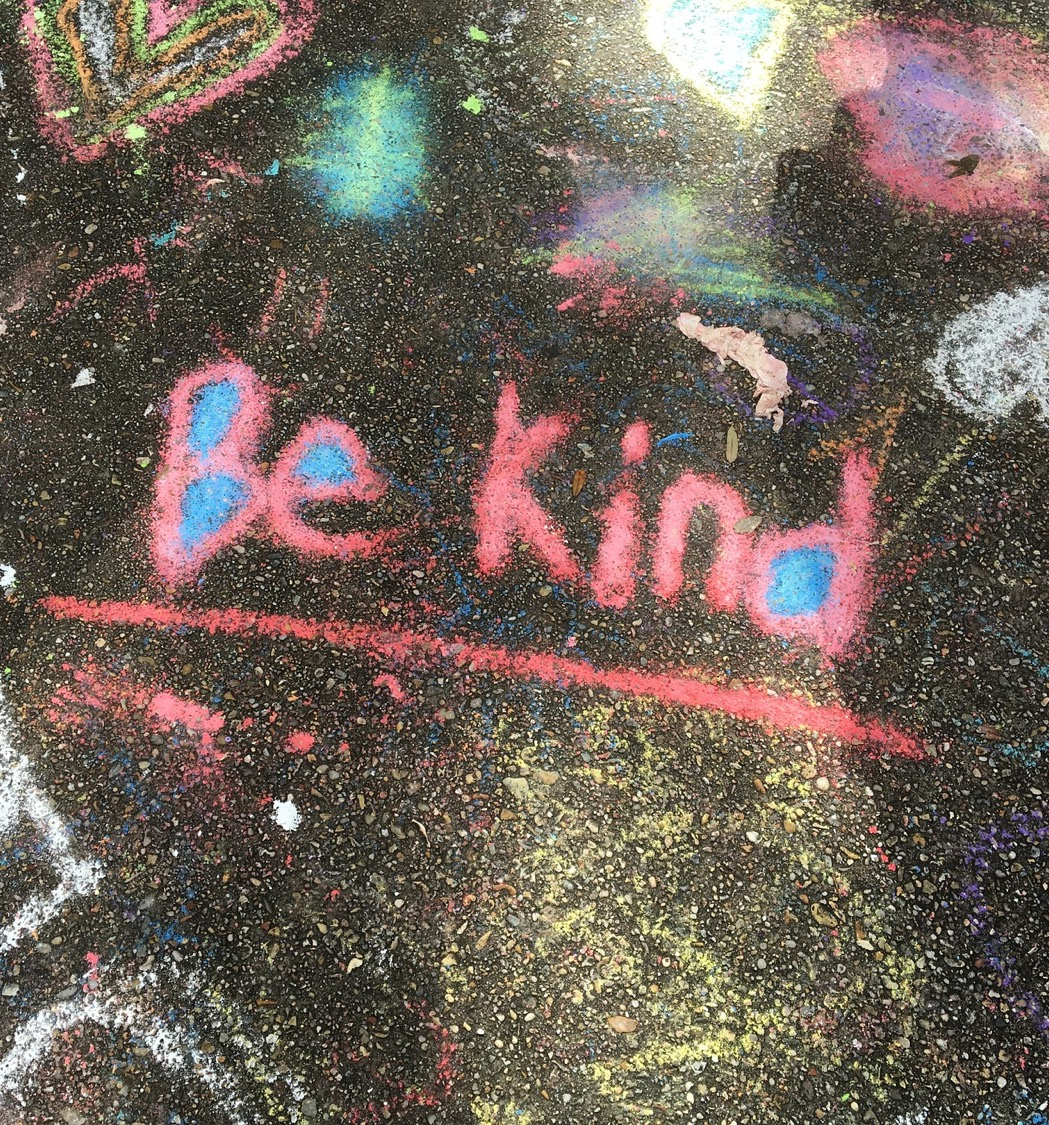 Be kind